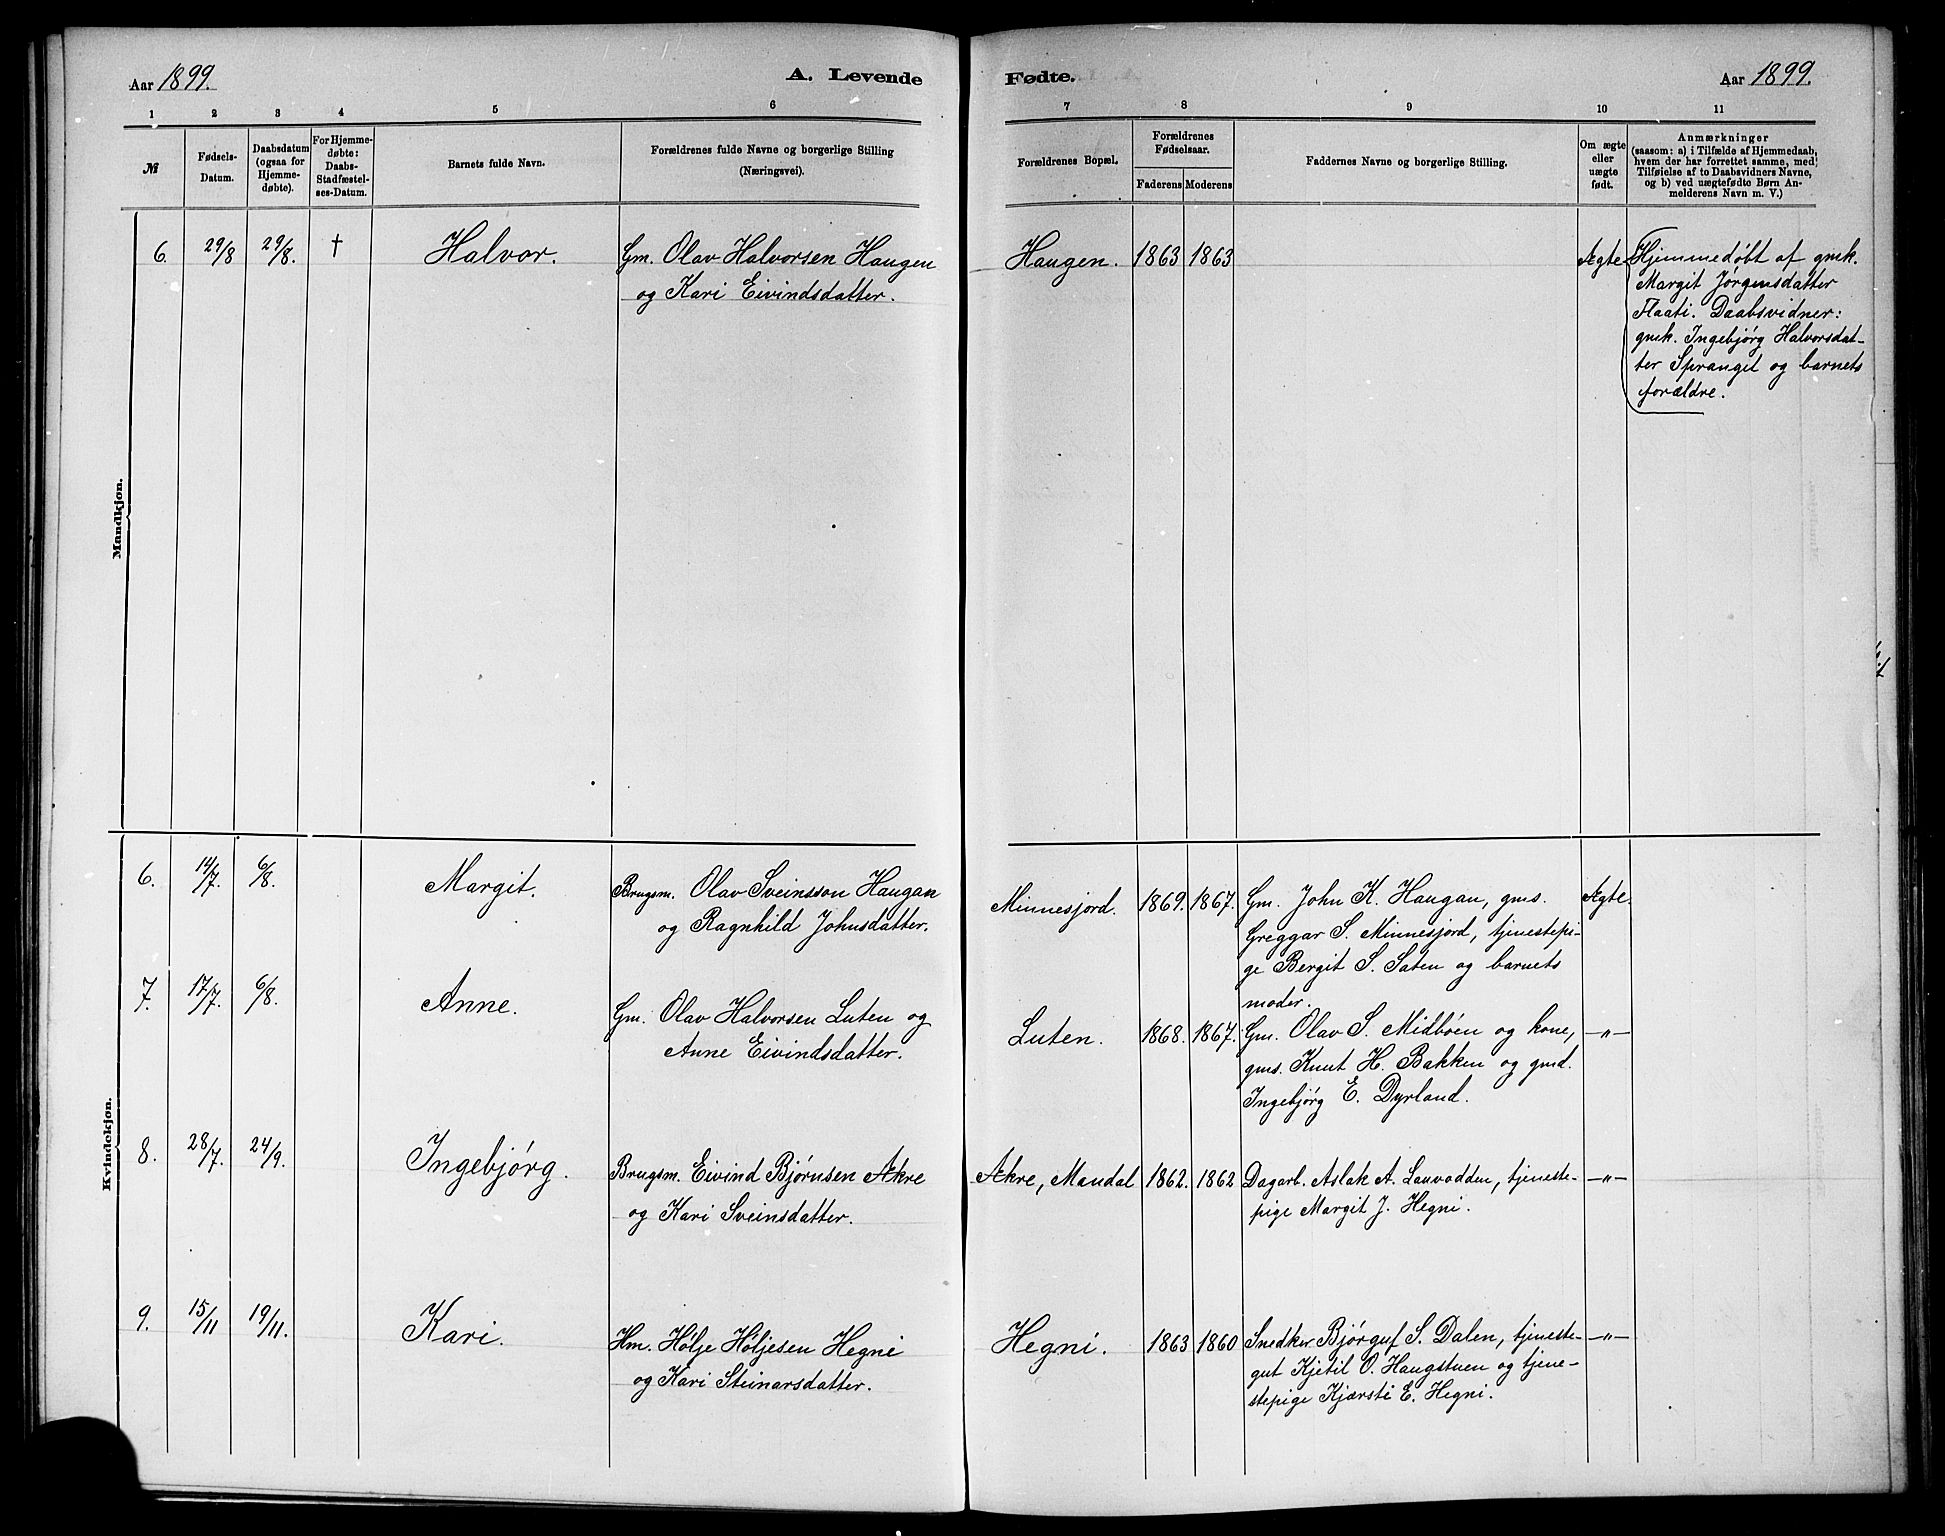 Aar 1899.
A. Levende
1 2 3 4 5 6
№
Fødsels-
Datum.
Daabsdatum
(ogsaa for
Hjemme-
døbte).
For Hjemme-
døbte:
Daabs-
Stadfæstel-
ses-Datum.
Barnets fulde Navn.
Forældrenes fulde Navne og borgerlige Stilling
(Næringsvei).
Mandkjøn.
6. 29/8 29/8. † Halvor. Gm. Olav Halvorsen Haugen
og Kari Eivindsdatter.
Kvindekjøn.
6. 14/7. 6/8. Margit. Brugsm. Olav Sveinsson Haugan
og Ragnhild Johnsdatter.
7. 17/7. 6/8. Anne. Gm. Olav Halvorsen Luten og
Anne Eivindsdatter.
8. 28/7. 24/9. Ingebjörg. Brugsm. Eivind Bjørnsen Ækre
og Kari Sveinsdatter.
9. 15/11 19/11. Kari. Hm. Hølje Høljesen Hegni
og Kari Steinarsdatter.
Fødte.
Aar 1899.
7 8 9 10 11
Forældrenes Bopæl.
Forældrenes
Fødselsaar.
Faderens Moderens
Faddernes Navne og borgerlige Stilling.
Om ægte
eller
uægte
født.
Anmærkninger
(saasom: a) i Tilfælde af Hjemmedaab,
hvem der har forrettet samme, med
Tilføielse af to Daabsvidners Navne,
og b) ved uægtefødte Børn An-
melderens Navn m. V.)
Haugen. 1863 1863 Ægte Hjemmedøbt af gmk.
Margit Jørgensdatter
Flaati. Daabsvidner:
gmk. Ingebjørg Halvorsdat-
ter Spranget og barnets
forældre.
Minnesjord. 1869. 1867. Gm. John K. Haugan, gms. Ægte.
Greggar S. Minnesjord, tjenestepi-
ge Bergit S. Saten og barnets
moder.
Luten. 1868. 1867. Gm. Olav S. Midbøen og kone, —„—
gms. Knut H. Bakken og gmd.
Ingebjørg E. Dyrland.
Ækre, Mandal 1862. 1862 Dagarb. Aslak A. Lauvodden, tjeneste- —„—
pige Margit J. Hegni.
Hegni. 1863 1860 Snedker Bjørguf S. Dalen, tjeneste- —„—
gut Kjetil O. Haugstuen og tjene-
stepige Kjærsti E. Hegni.